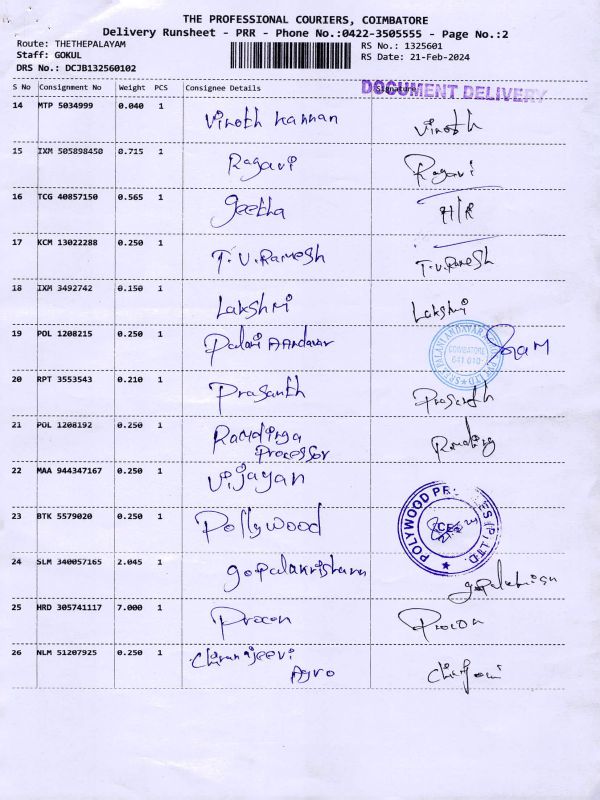 THE PROFESSIONAL COURIERS, COIMBATORE
Delivery Runsheet - PRR - Phone No.:0422-3505555 - Page No.:2
Route: THETHEPALAYAM
Staff: GOKUL
DRS No.: DCJB132560102
RS No.: 1325601
RS Date: 21-Feb-2024
S No Consignment No Weight PCS Consignee Details Signature
DOCUMENT DELIVERY
14 MTP 5034999 0.040 1 Vinoth Kannan Vinoth
15 IXM 505898450 0.715 1 Ragavi Ragavi
16 TCG 40857150 0.565 1 geetha H/R
17 KCM 13022288 0.250 1 T.V.Ramesh T.V.Ramesh
18 IXM 3492742 0.150 1 Lakshmi Lakshmi
19 POL 1208215 0.250 1 Palani AAndavar
COIMBATORE
641 010
20 RPT 3553543 0.210 1 Prasanth Prasanth
21 POL 1208192 0.250 1
Processor
22 MAA 944347167 0.250 1 Vijayan
23 BTK 5579020 0.250 1 Pollywood
POLYWOOD (P) LTD
24 SLM 340057165 2.045 1 gopalakrishanan
25 HRD 305741117 7.000 1 Procon Procon
26 NLM 51207925 0.250 1 Chiranajeevi
Agro